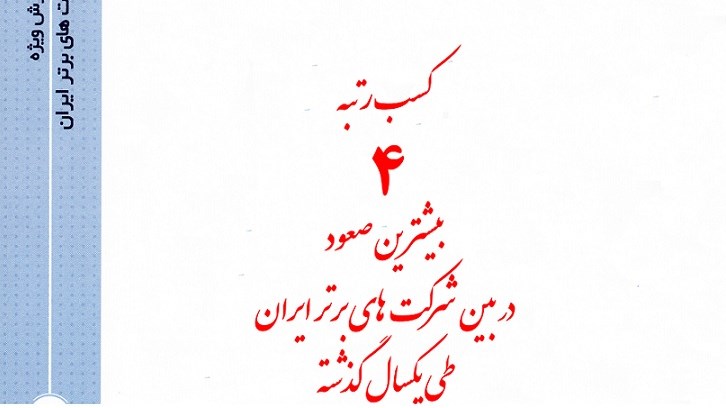 کسب رتبه
۴
بیشترین صعود
در بین شرکت های برتر ایران
طی یکسال گذشته
ویژه
های برتر ایران